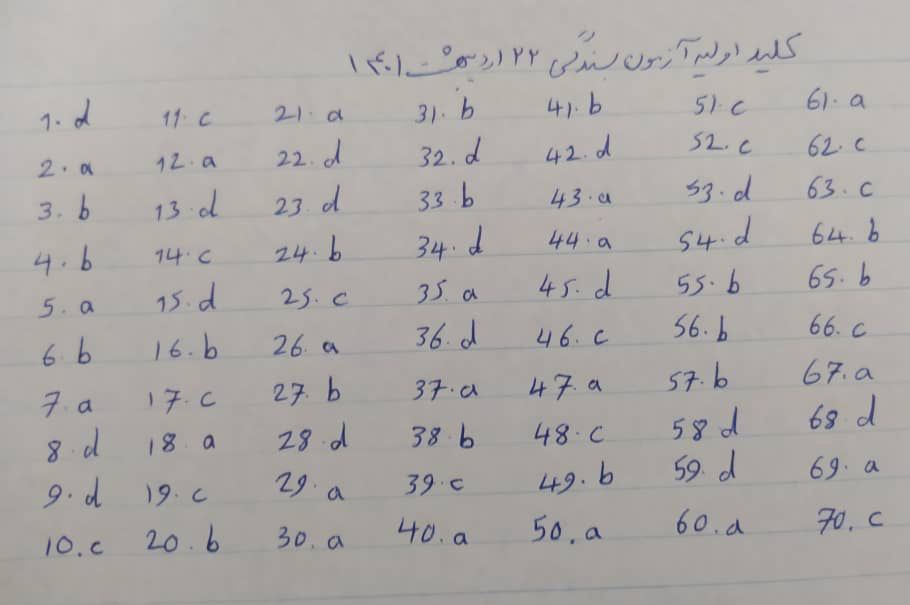 کلید اولیه آزمون بسندگی ۲۲ اردیبهشت ۱۴۰۱
1. d 11. c 21. a 31. b 41. b 51. c 61. a
2. a 12. a 22. d 32. d 42. d 52. c 62. c
3. b 13. d 23. d 33. b 43. a 53. d 63. c
4. b 14. c 24. b 34. d 44. a 54. d 64. b
5. a 15. d 25. c 35. a 45. d 55. b 65. b
6. b 16. b 26. a 36. d 46. c 56. b 66. c
7. a 17. c 27. b 37. a 47. a 57. b 67. a
8. d 18. a 28. d 38. b 48. c 58 d 68. d
9. d 19. c 29. a 39. c 49. b 59. d 69. a
10. c 20. b 30. a 40. a 50. a 60. 70. c